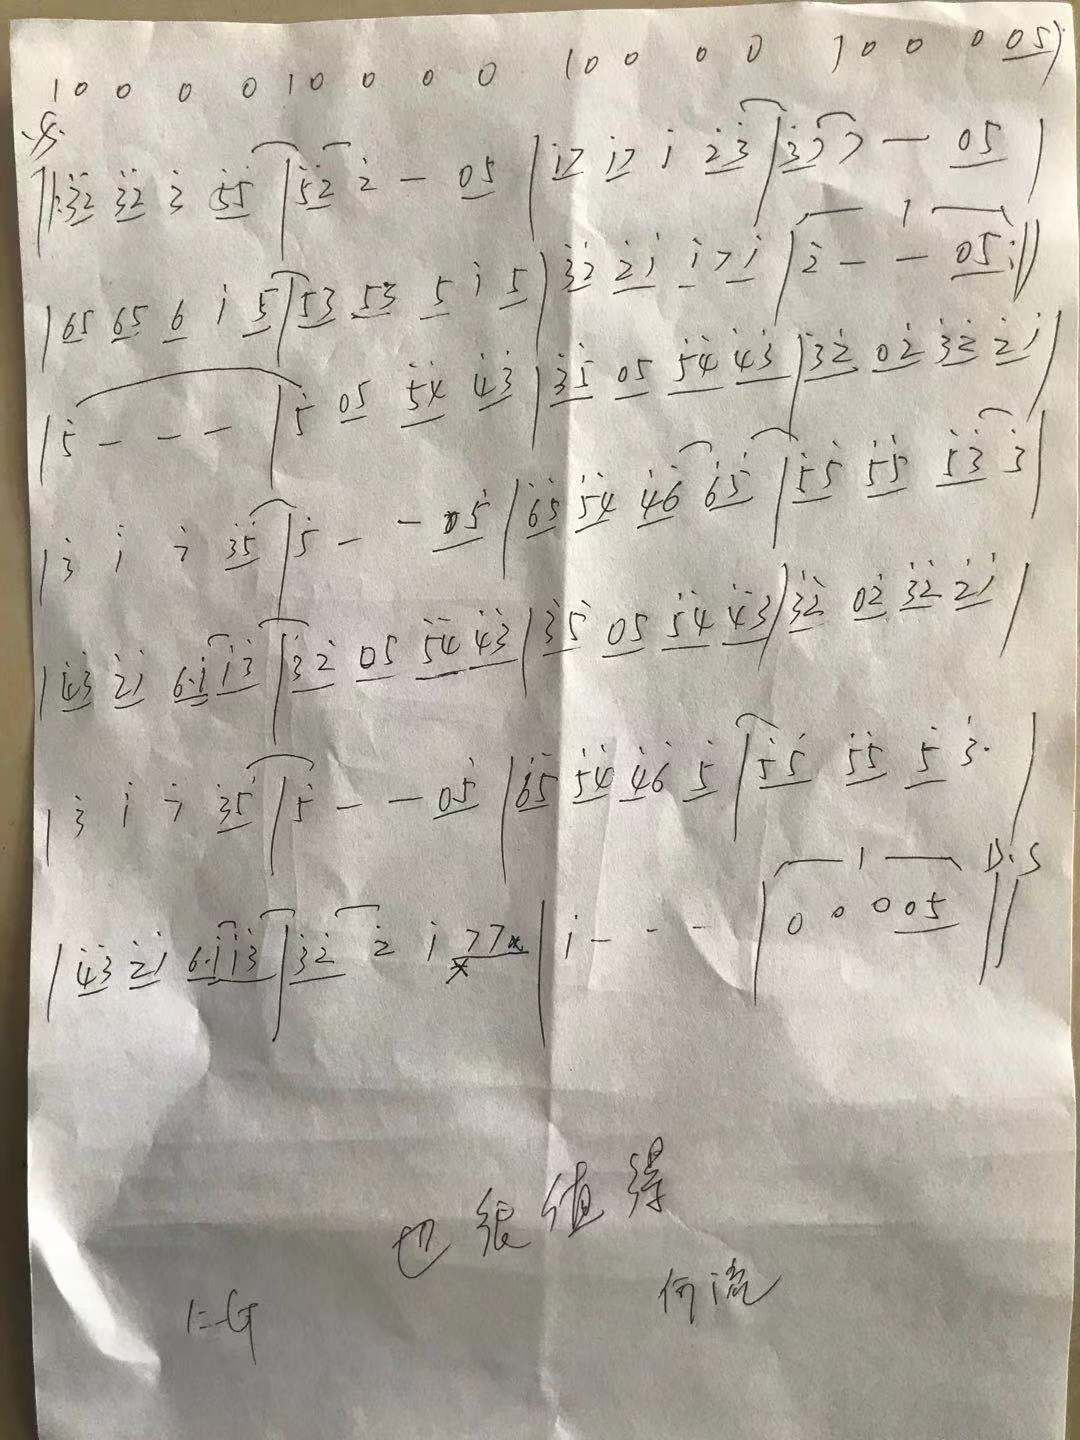 | 0 0 0 0 | 0 0 0 0 | 0 0 0 0 | 0 0 0 05)
‖: 3̇2̇ 3̇2̇ 3̇ 5̇5̇ | 5̇2̇ 2̇ - 05 | 1̇7 1̇7 1̇ 2̇3̇ | 3̇7 7 - 05 |
| 65 65 6 1̇ 5 | 53 53 5 1̇ 5 | 3̇2̇ 2̇1̇ 1̇ 7 1̇ | 2̇ - - 05 :‖ 1
| 5̇ - - - | 5̇ 05 5̇4̇ 4̇3̇ | 3̇5̇ 05 5̇4̇ 4̇3̇ | 3̇2̇ 02̇ 3̇2̇ 2̇1̇ |
| 3̇ 1̇ 7 3̇5̇ | 5̇ - - 05̇ | 6̇5̇ 5̇4̇ 4̇6̇ 6̇5̇ | 5̇5̇ 5̇5̇ 5̇3̇ 3̇ |
| 4̇3̇ 2̇1̇ 6·1̇ 1̇3̇ | 3̇2̇ 05 5̇4̇ 4̇3̇ | 3̇5̇ 05 5̇4̇ 4̇3̇ | 3̇2̇ 02̇ 3̇2̇ 2̇1̇ |
| 3̇ 1̇ 7 3̇5̇ | 5̇ - - 05̇ | 6̇5̇ 5̇4̇ 4̇6̇ 5̇ | 5̇5̇ 5̇5̇ 5̇ 3̇· |
| 4̇3̇ 2̇1̇ 6·1̇ 1̇3̇ | 3̇2̇ 2̇ 1̇ 77 | 1̇ - - - | 0 0 0 05 ‖ 1 D.S
也很值得
何流
1=G